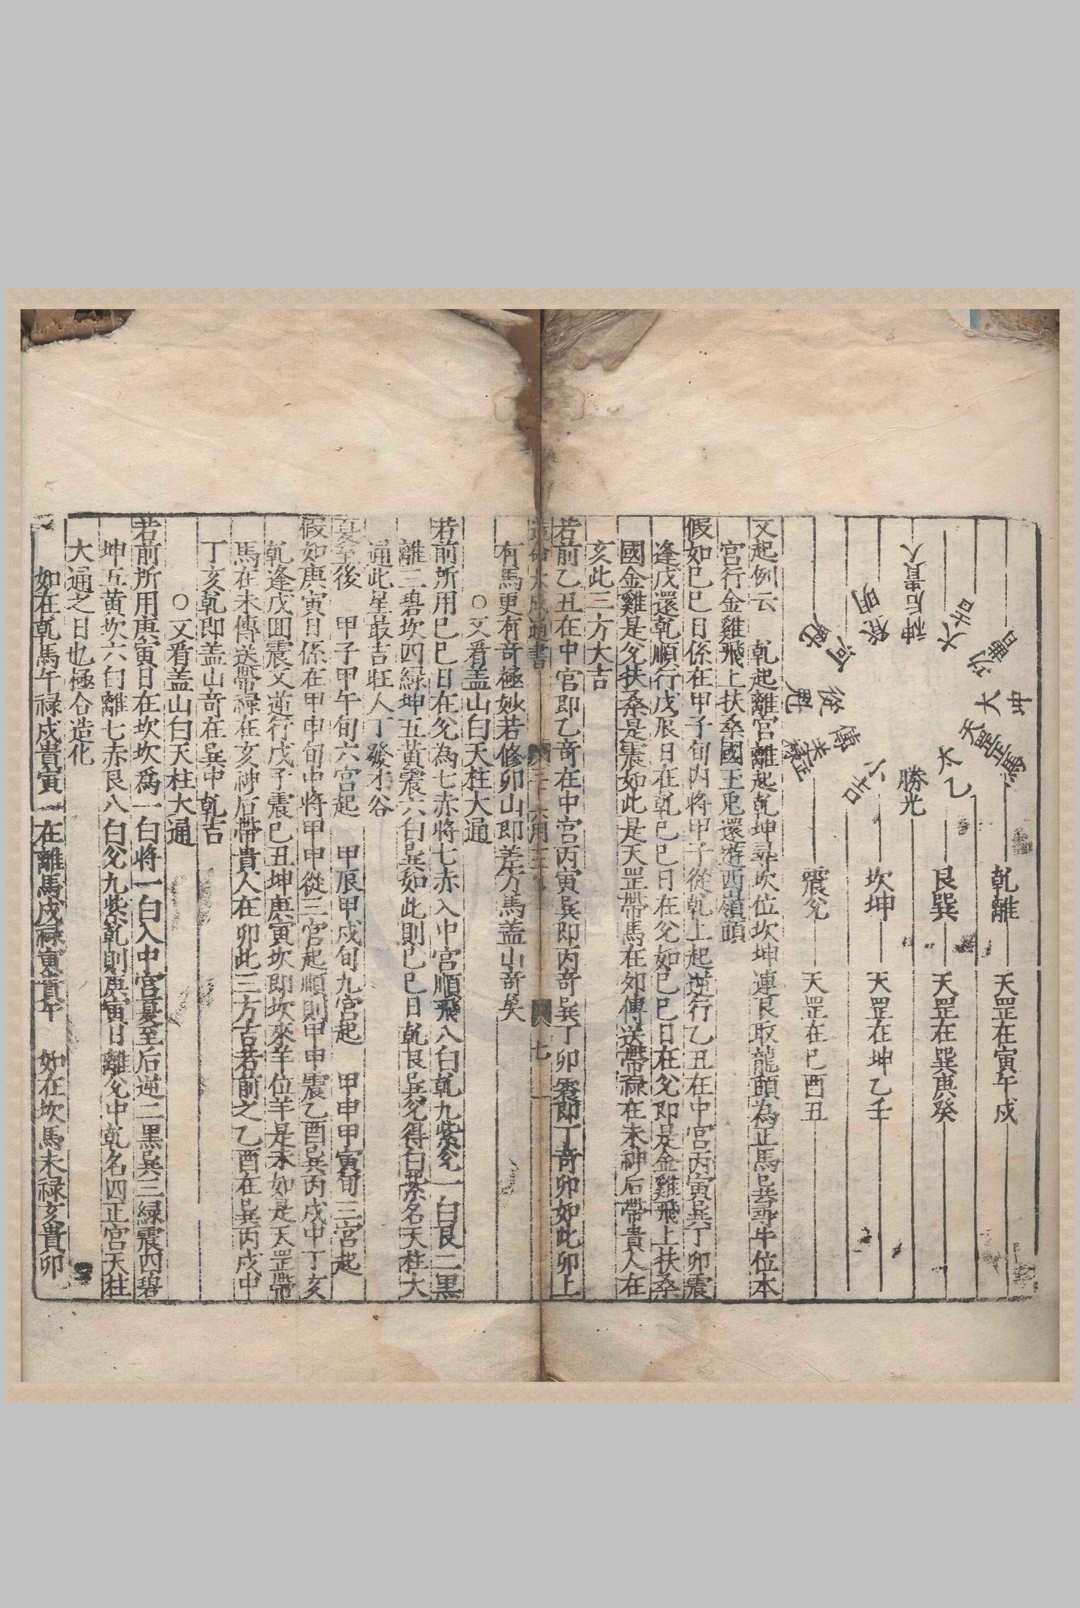 乾離　天罡在寅午戌
艮巽　天罡在巽庚癸
坎坤　天罡在坤乙壬
震兊　天罡在巳酉丑
勝光
小吉
傳送
從魁
河魁
登明
神后貴人
大吉
功曹
太冲
天罡
太乙
又起例云　乾起離宮離起乾坤尋坎位坎坤連艮取龍頭為正馬巽尋牛位本
宮行金雞飛上扶桑國玉兎還遊西嶺頭
假如己巳日係在甲子旬内將甲子從乾上起逆行乙丑在中宮丙寅巽丁卯震
逢戊還乾順行戊辰日在乾己巳日在兊如己巳日在兊即是金雞飛上扶桑
國金雞是兊扶桑是震如此是天罡帶馬在卯傳送帶祿在未神后帶貴人在
亥此三方大吉
若前乙丑在中宮即乙竒在中宮丙寅巽即丙竒巽丁卯震即丁竒卯如此卯上
有馬更有竒極妙若修卯山即差方馬盖山竒矣
○又看盖山白天柱大通
若前所用己巳日在兊為七赤將七赤入中宮順飛八白乾九紫兊一白艮二黑
離三碧坎四緑坤五黄震六白巽如此則己巳日乾艮巽兊得白紫名天柱大
通此星最吉旺人丁發才谷
夏至後　甲子甲午旬六宮起　甲辰甲戌旬九宮起　甲申甲寅旬三宮起
假如庚寅日係在甲申旬中將甲申從三宮起順則甲申震乙酉巽丙戌中丁亥
乾逢戊囬震又逆行戊子震己丑坤庚寅坎即坎來羊位羊是未如是天罡帶
馬在未傳送帶祿在亥神后帶貴人在卯此三方吉若前之乙酉在巽丙戌中
丁亥乾即盖山竒在巽中乾吉
○又看盖山白天柱大通
若前所用庚寅日在坎坎爲一白將一白入中宮夏至后逆二黑巽三緑震四碧
坤五黄坎六白離七赤艮八白兊九紫乾則庚寅日離兊中乾名四正宮天柱
大通之日也極合造化
如在乾馬午祿戌貴寅　在離馬戌祿寅貴午　如在坎馬未祿亥貴卯